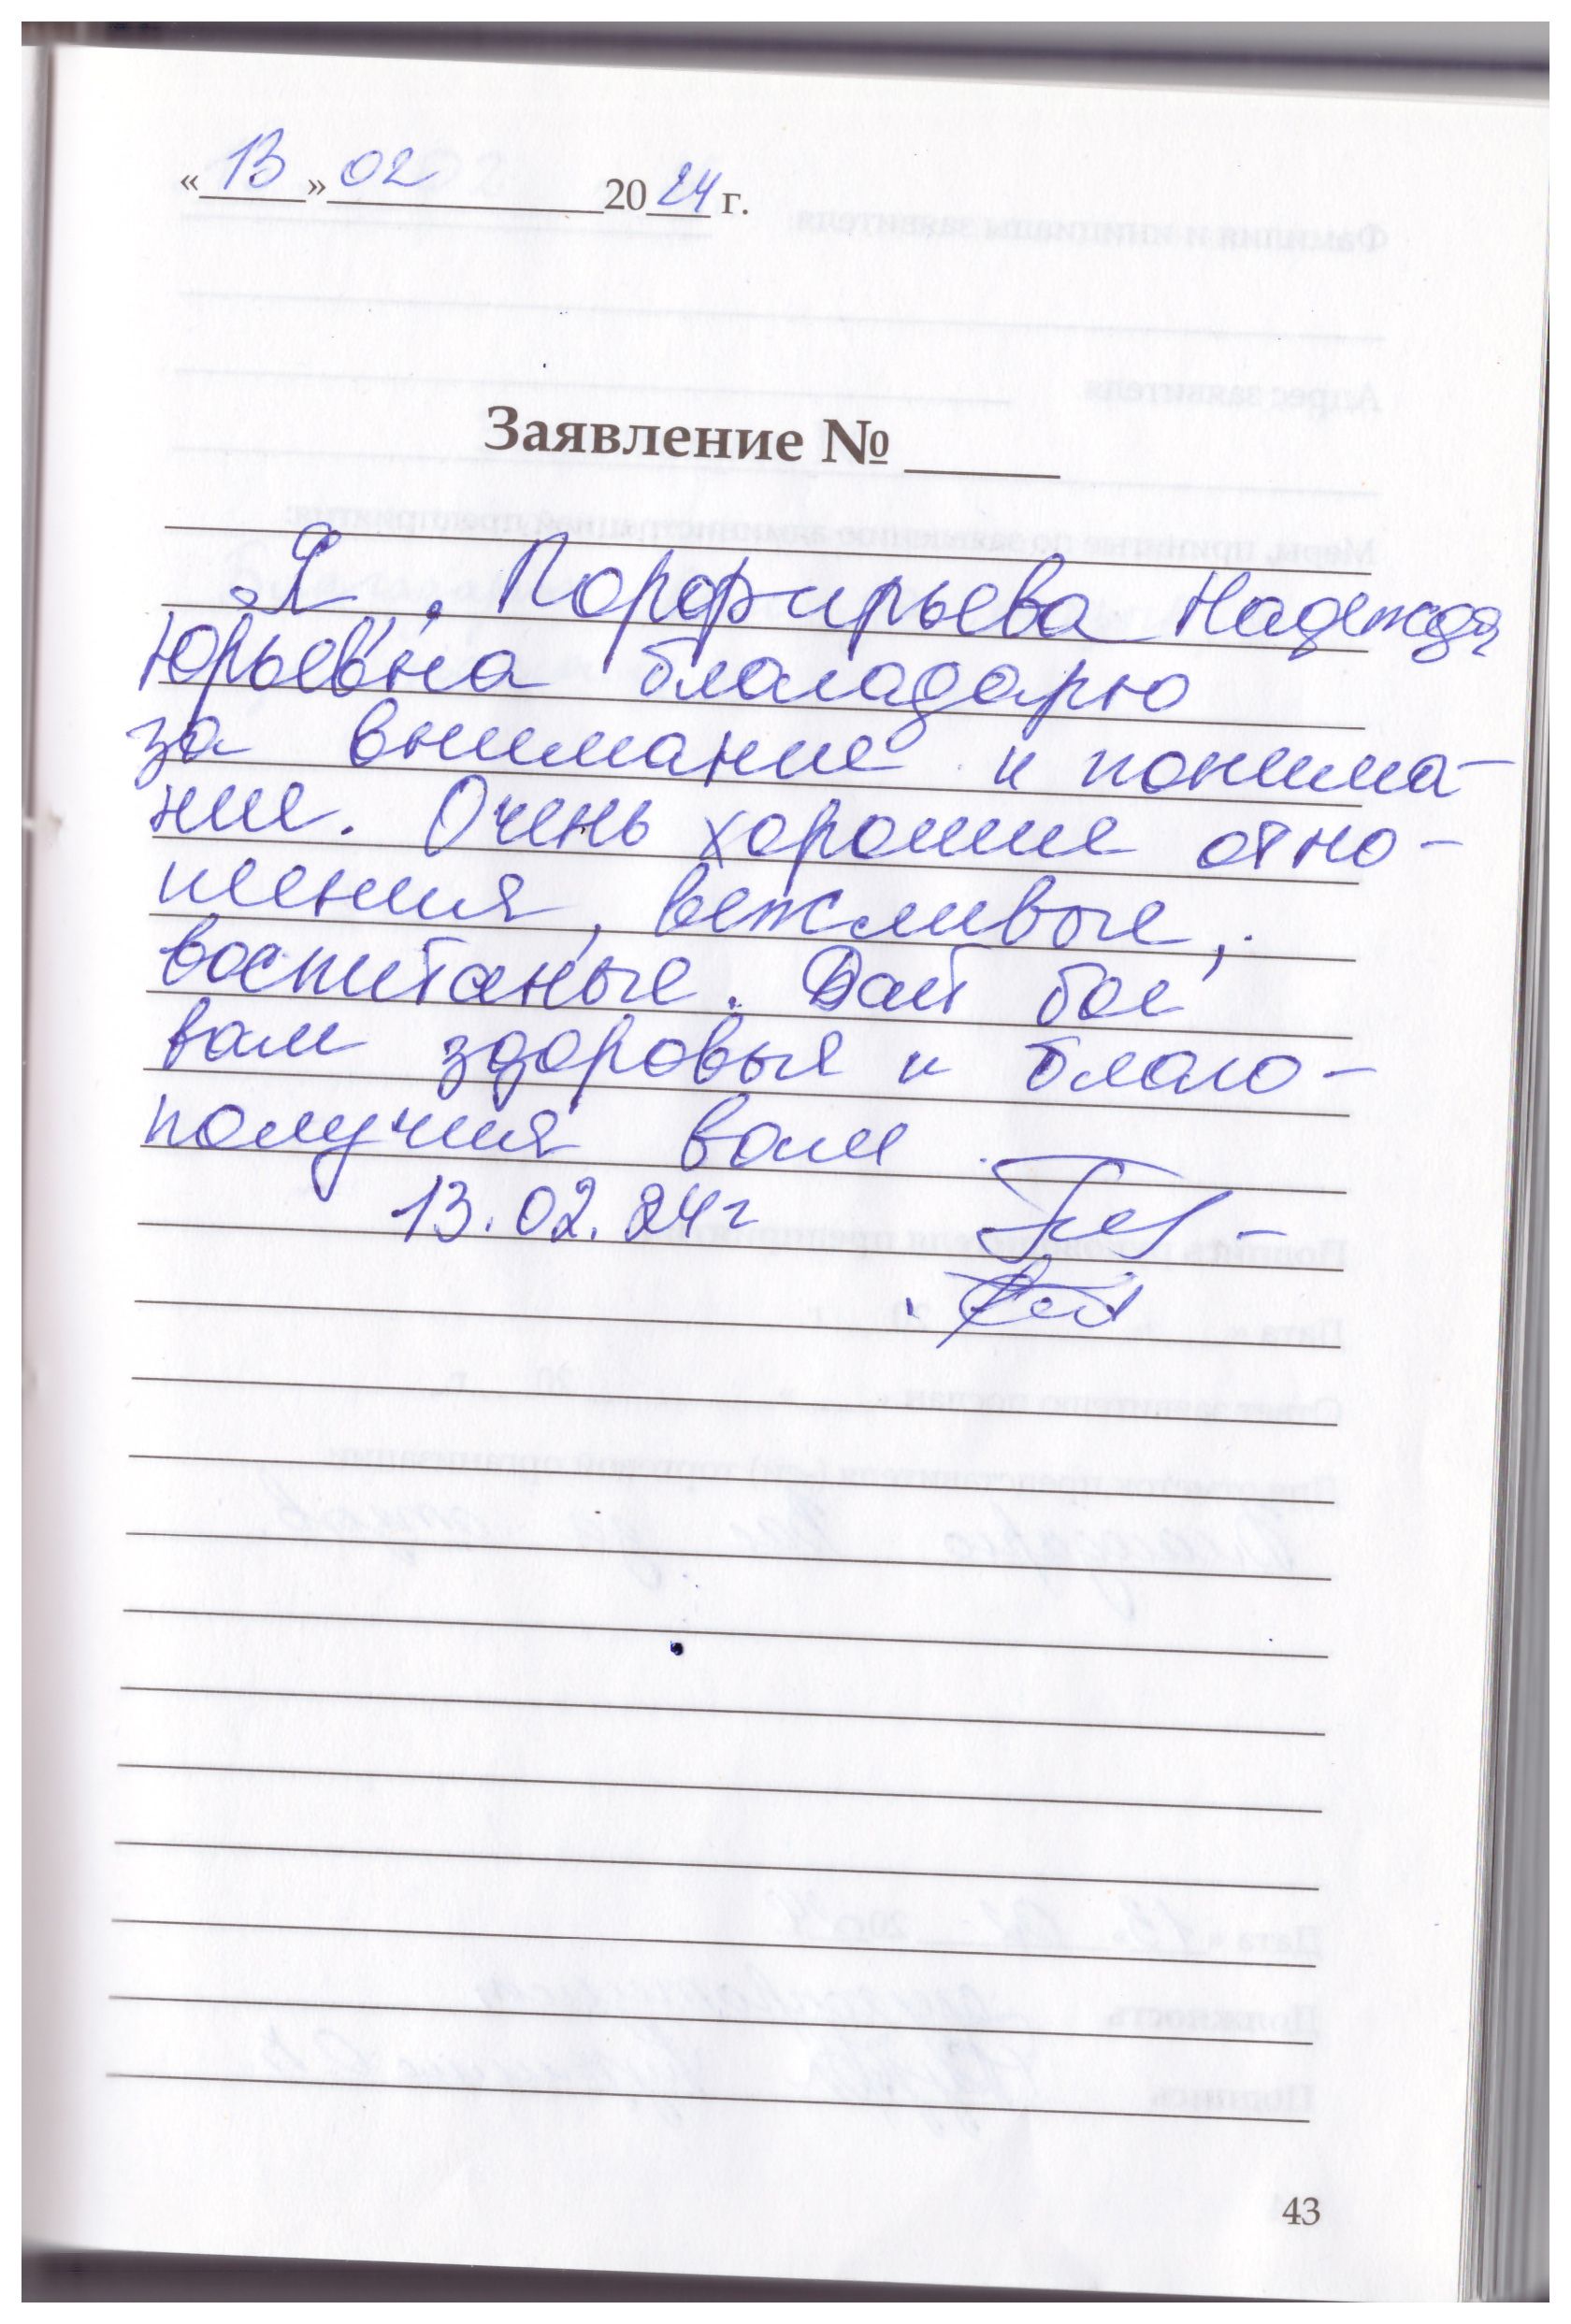 «13» 02 2024 г.
Заявление № _____
Я, Порфирьева Надежда
Юрьевна благадарю
за внимание и понима-
ние. Очень хорошие отно-
шения, вежливые,
воспитаные. Дай бог
вам здоровья и благо-
получия вам
13.02.24г
43